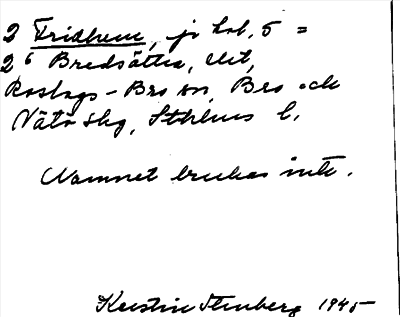 2 Fridhem, jr hel, 5 =
2⁶ Bredsättra, Utt,
Roslags-Bro sn, Bro och
Vätö skg, Sthlms l.
Namnet brukas inte.
Kerstin Stenberg 1945